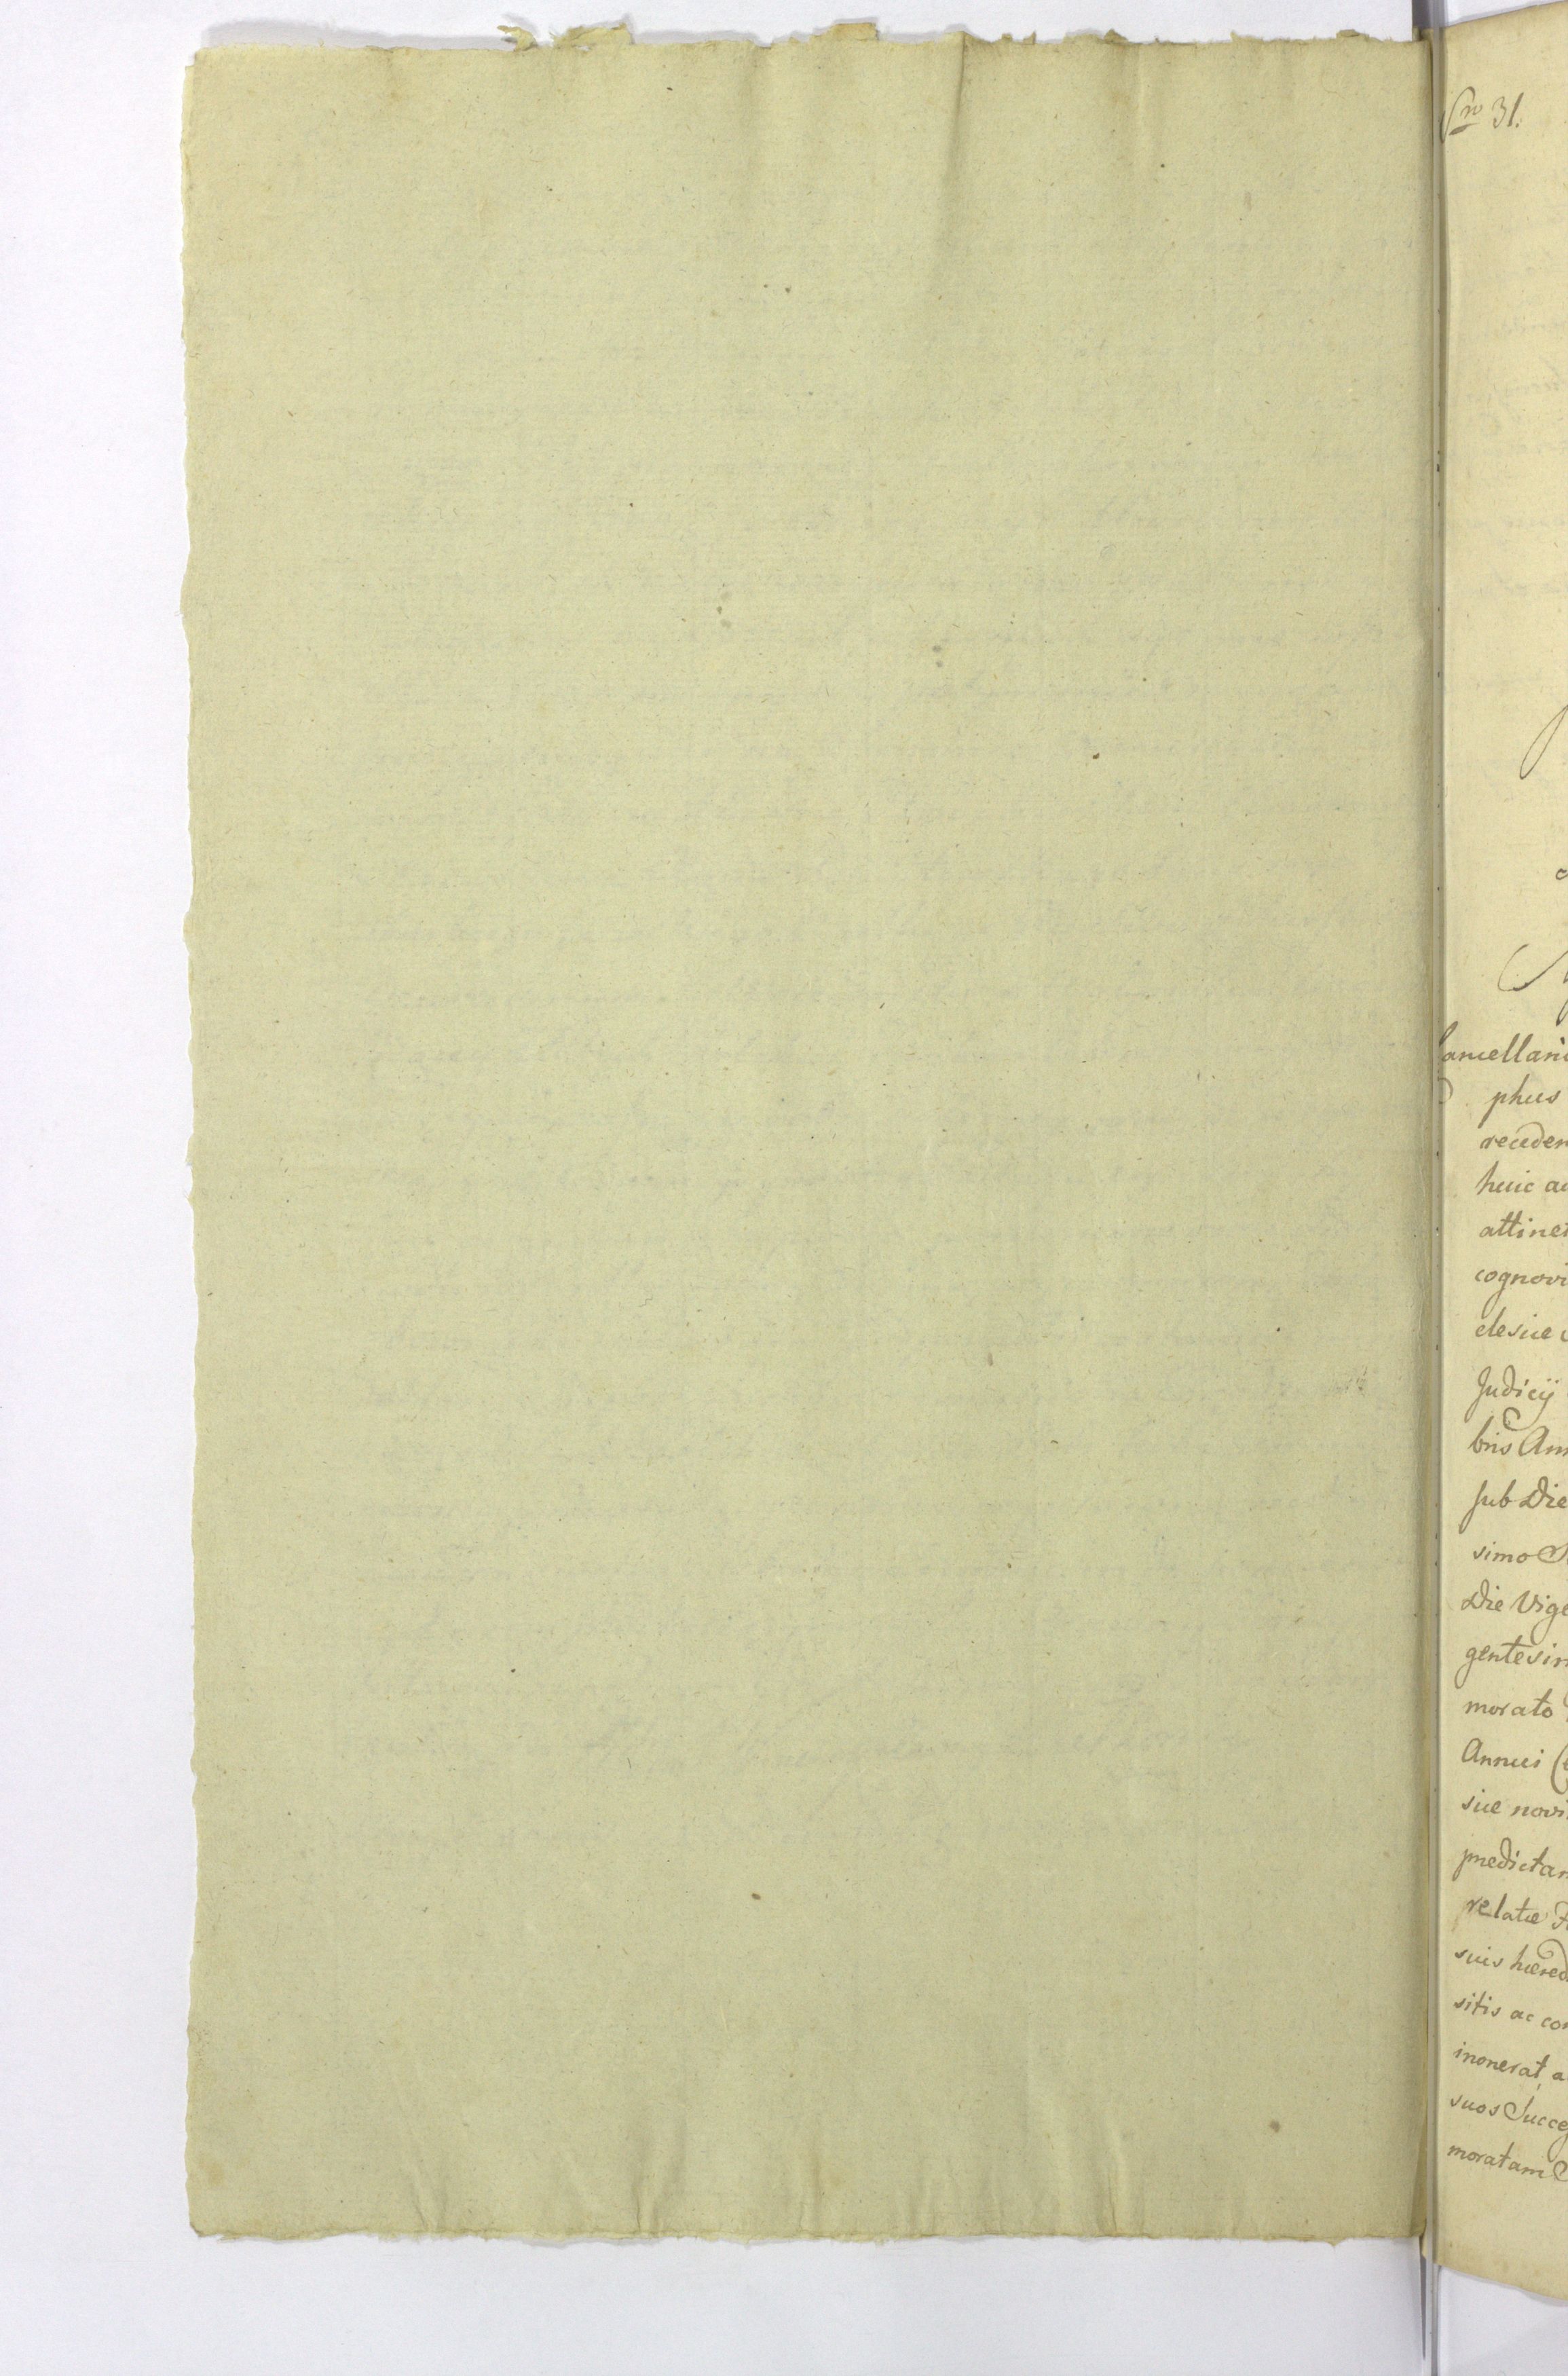 No 31.
Cancellari
phus
receden
huic ac
attinet
cognovi
clesiæ
Judicÿ
bris Ann
sub Die
simo S
Die Vige
gentesim
morato
Annui
siæ novi
prædictam
relatæ
suis hæred
sitis ac con
inonerat, a
suos Succes
moratam